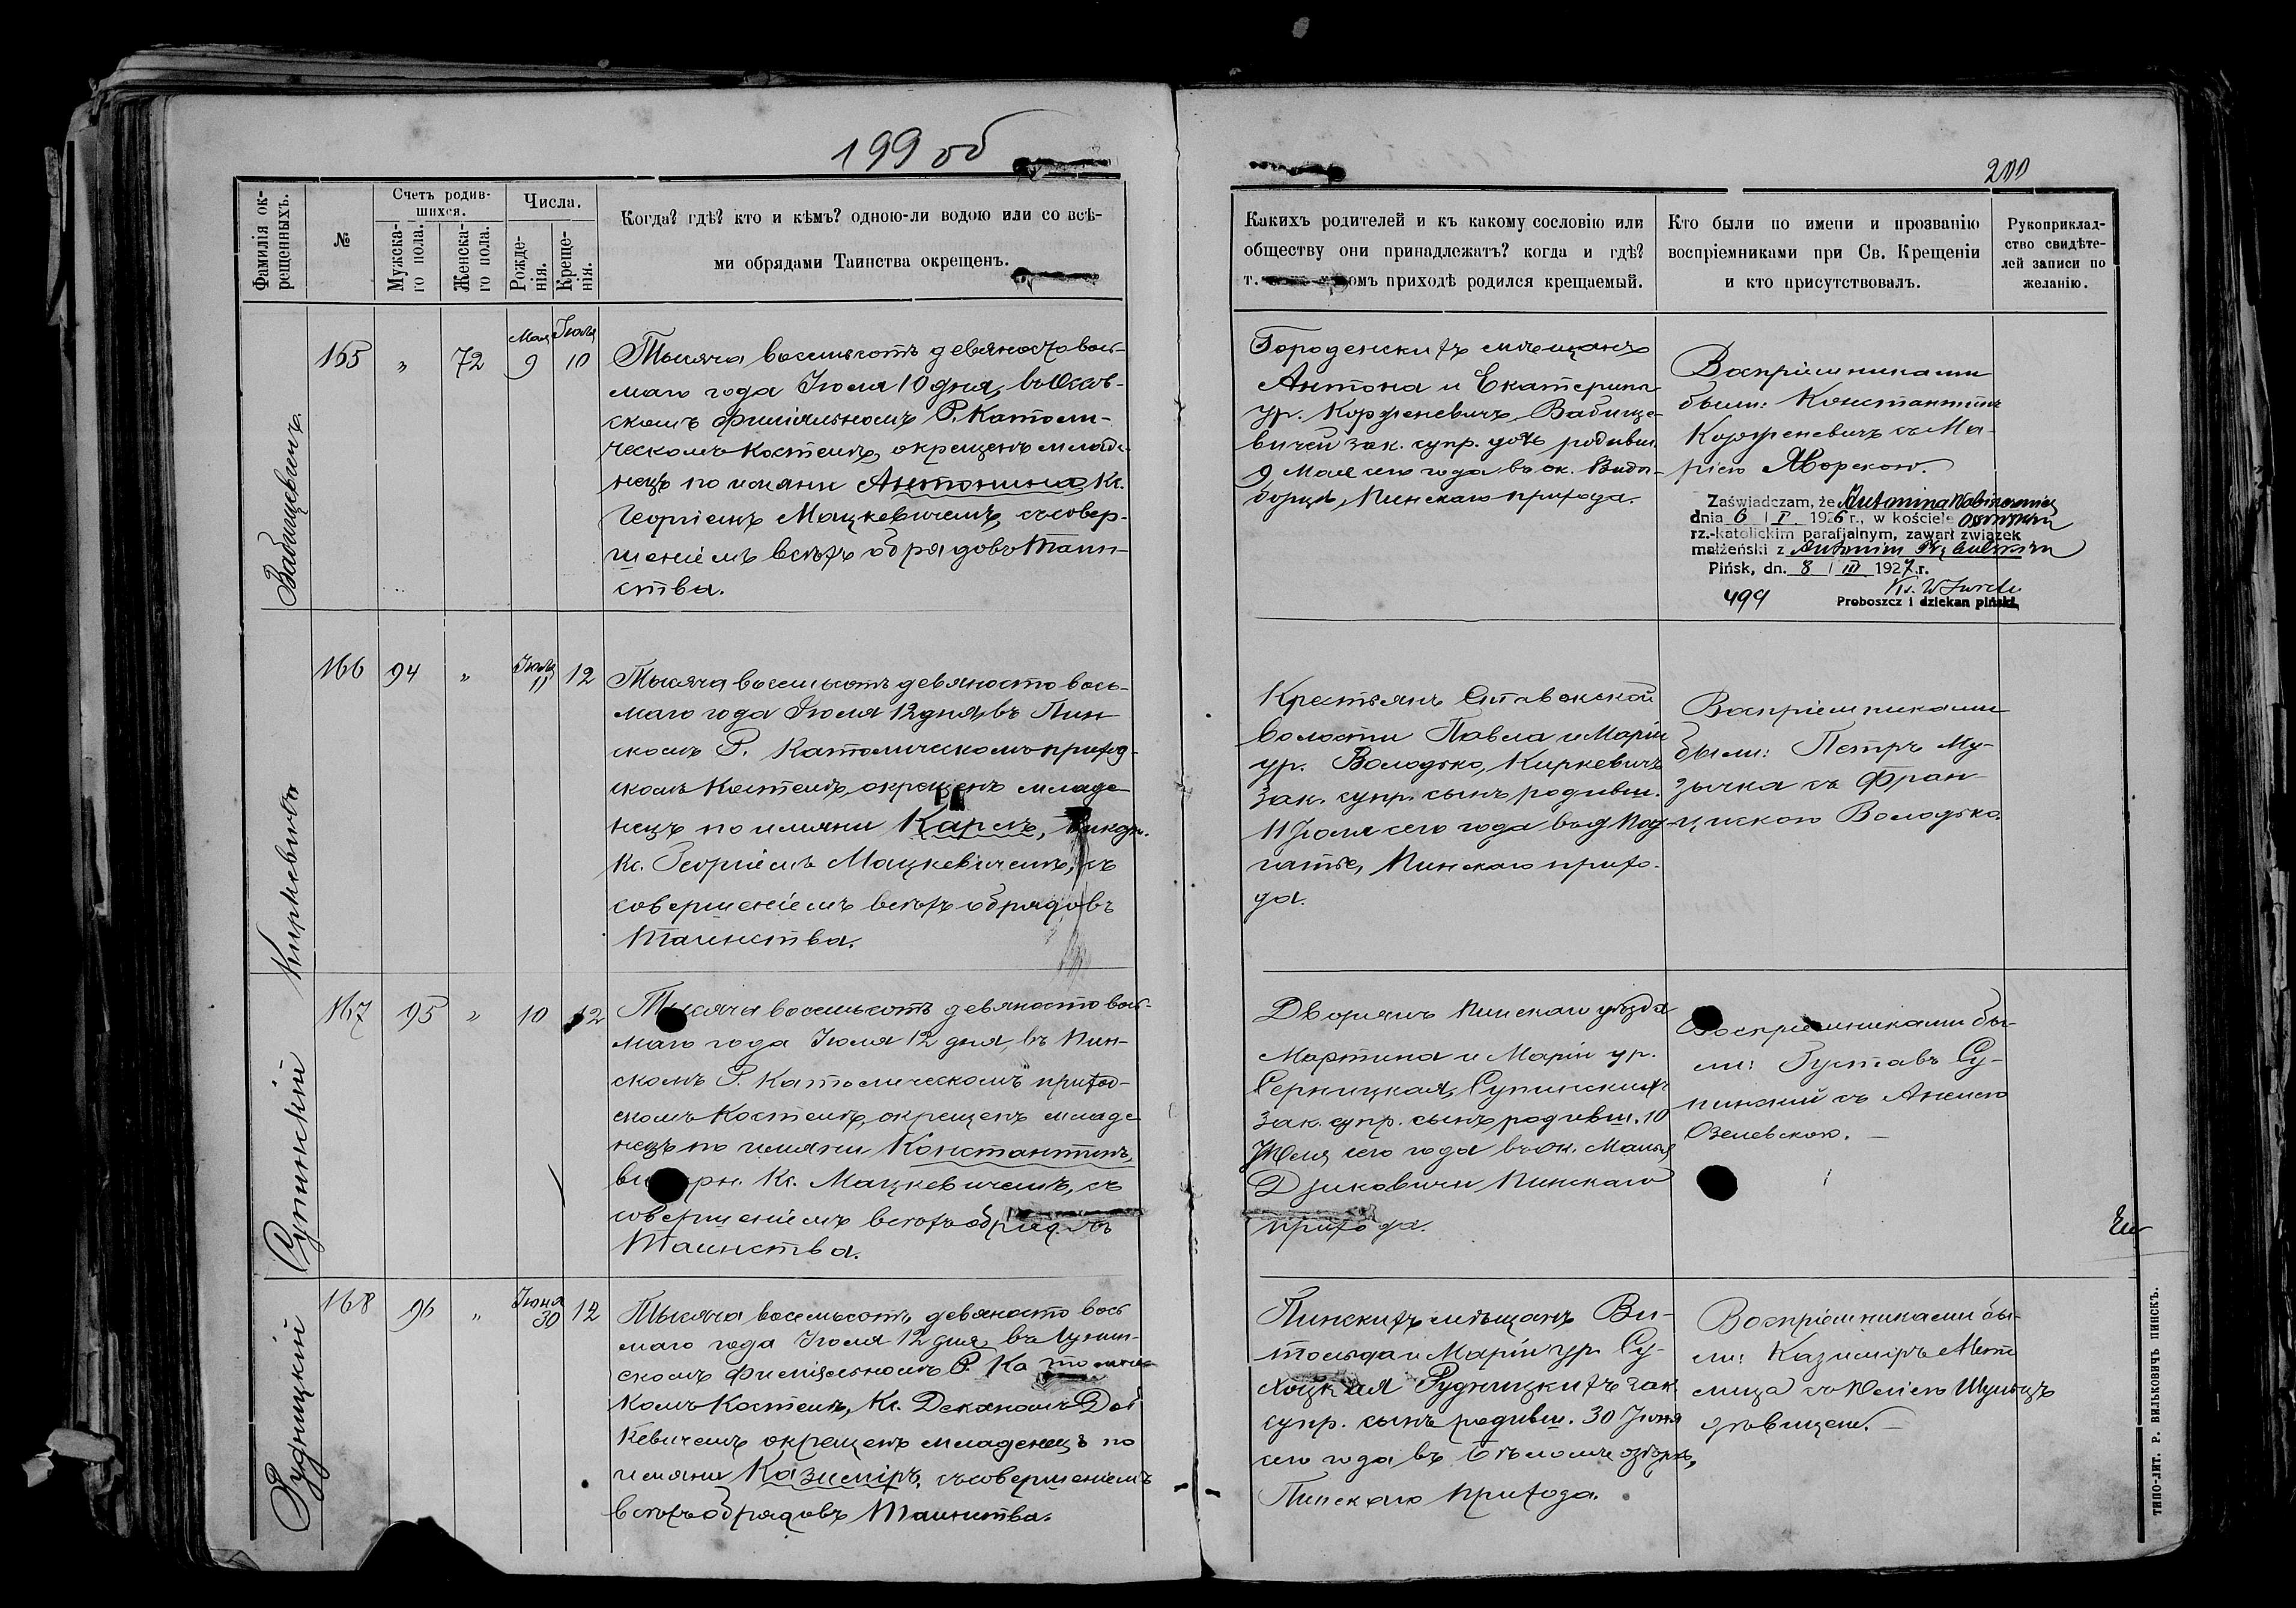 199 об
200
Фамилія ок-
рещенныхъ.
№
Счетъ родив-
шихся.
Мужска-
го пола.
Женска-
го пола.
Числа.
Рожде-
нія.
Креще-
нія.
Когда? гдѣ? кто и кѣмъ? одною-ли водою или со всѣ-
ми обрядами Таинства окрещенъ.
Каихъ родителей и къ какому сословію или
обществу они принадлежатъ? когда и гдѣ?
т. омъ приходѣ родился крещаемый.
Кто были по имени и прозванію
воспріемниками при Св. Крещеніи
и кто присутствовалъ.
Рукоприклад-
ство свидѣте-
лей записи по
желанію.
165 " 72 Мая 9 Іюля 10
Тысяча восемьсотъ девяносто вось-
маго года Іюля 10 дня, въ
скомъ филіяльномъ Р. Католи-
ческомъ Костелѣ, окрещенъ младе-
нецъ по имяни Антонина, Кс.
Георгіемъ Мацкевичемъ, съ совер-
шеніемъ всѣхъ обрядовъ Таин-
ства.
мѣщанъ
Антона и Екатерины
ур. Корженевичъ,
вичей зак. супр. дочь родивш.
9 Мая сего года въ ок.
Пинскаго прихода.
Воспріемниками
были: Константинъ
Корженевичъ съ Ма-
ріею
Zaświadczam, że Antonina
dnia 6 I 1926 r., w kościele
rz.-katolickim parafjalnym, zawarł związek
małżeński z Antonim
Pińsk, dn. 8 / III 1927 r.
499
Proboszcz i dziekan piński,
Киркевичъ
166 94 " Іюля 11 12
Тысяча восемьсотъ девяносто вось-
маго года Іюля 12 дня, въ Пин-
скомъ Р. Католическомъ приход-
скомъ Костелѣ, окрещенъ младе-
нецъ по имяни Карлъ,
Кс. Георгіемъ Мацкевичемъ, съ
совершеніемъ всѣхъ обрядовъ
Таинства.
Крестьянъ Ставокской
волости Павла и Маріи
ур. Володько, Киркевичъ
зак. супр. сынъ родивш.
11 Іюля сего года въ д.
Пинскаго прихо-
да.
Воспріемниками
были: Петръ Му-
зычка съ Фран-
цискою Володько.
Супинскій
167 95 " 10 12
Тысяча восемьсотъ девяносто вось-
маго года Іюля 12 дня, въ Пин-
скомъ Р. Католическомъ приход-
скомъ Костелѣ, окрещенъ младе-
нецъ по имяни Константинъ,
Кс. Мацкевичемъ, съ
совершеніемъ всѣхъ обрядовъ
Таинства.
Дворянъ Пинскаго уѣзда
Мартина и Маріи ур.
Серницкая, Супинскихъ
зак. супр. сынъ родивш. 10
Іюля сего года въ ок. Малыя
Дзиковичи Пинскаго
прихода.
Воспріемниками бы-
ли: Густавъ Су-
пинскій съ
Рудницкій
168 96 " Іюня 30 12
Тысяча восемьсотъ девяносто вось
маго года Іюля 12 дня, въ Лунин-
скомъ филіяльномъ Р. Католичес
комъ Костелѣ, Кс. Деканомъ
кевичемъ окрещенъ младенецъ по
имяни Казиміръ, съ совершеніемъ
всѣхъ обрядовъ Таинства.
Пинскихъ мѣщанъ Ви-
тольда и Маріи ур.
Рудницкихъ зак.
супр. сынъ родивш. 30 Іюня
сего года въ Бѣломъ озерѣ,
Пинскаго прихода.
Воспріемниками бы-
ли: Казиміръ
съ Юліею
ТИПО-ЛИТ. Р. ВИЛЬКОВИЧЪ ПИНСКЪ.